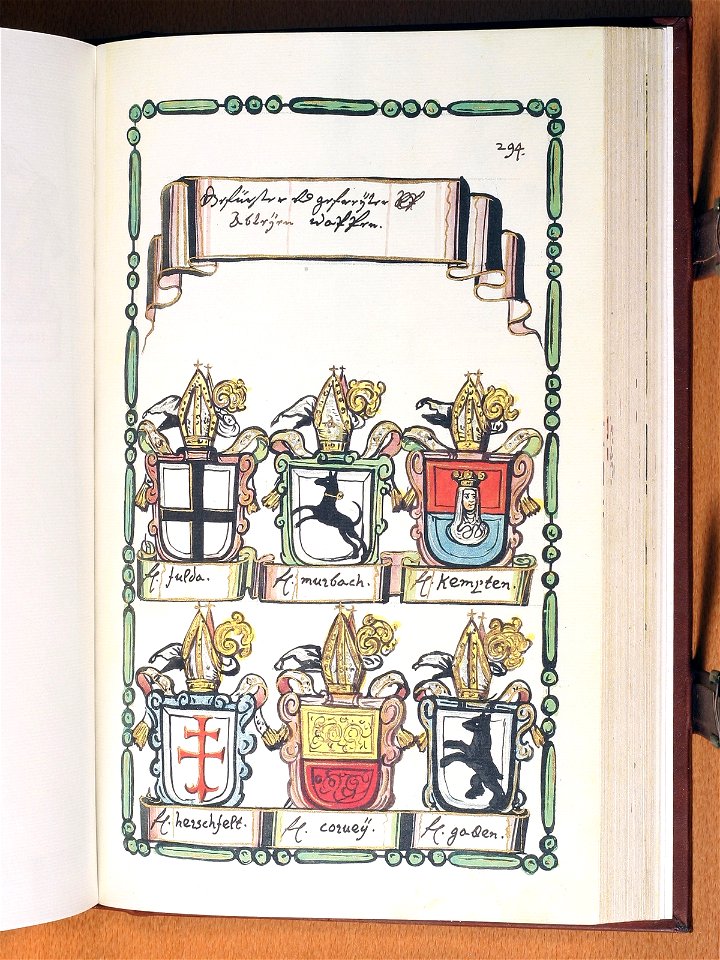 294.
Gefürster
Abteyen wappen.
H. fulda.
H. murbach.
H. Kempten.
H. herschfelt.
H. corueÿ.
H. gaden.